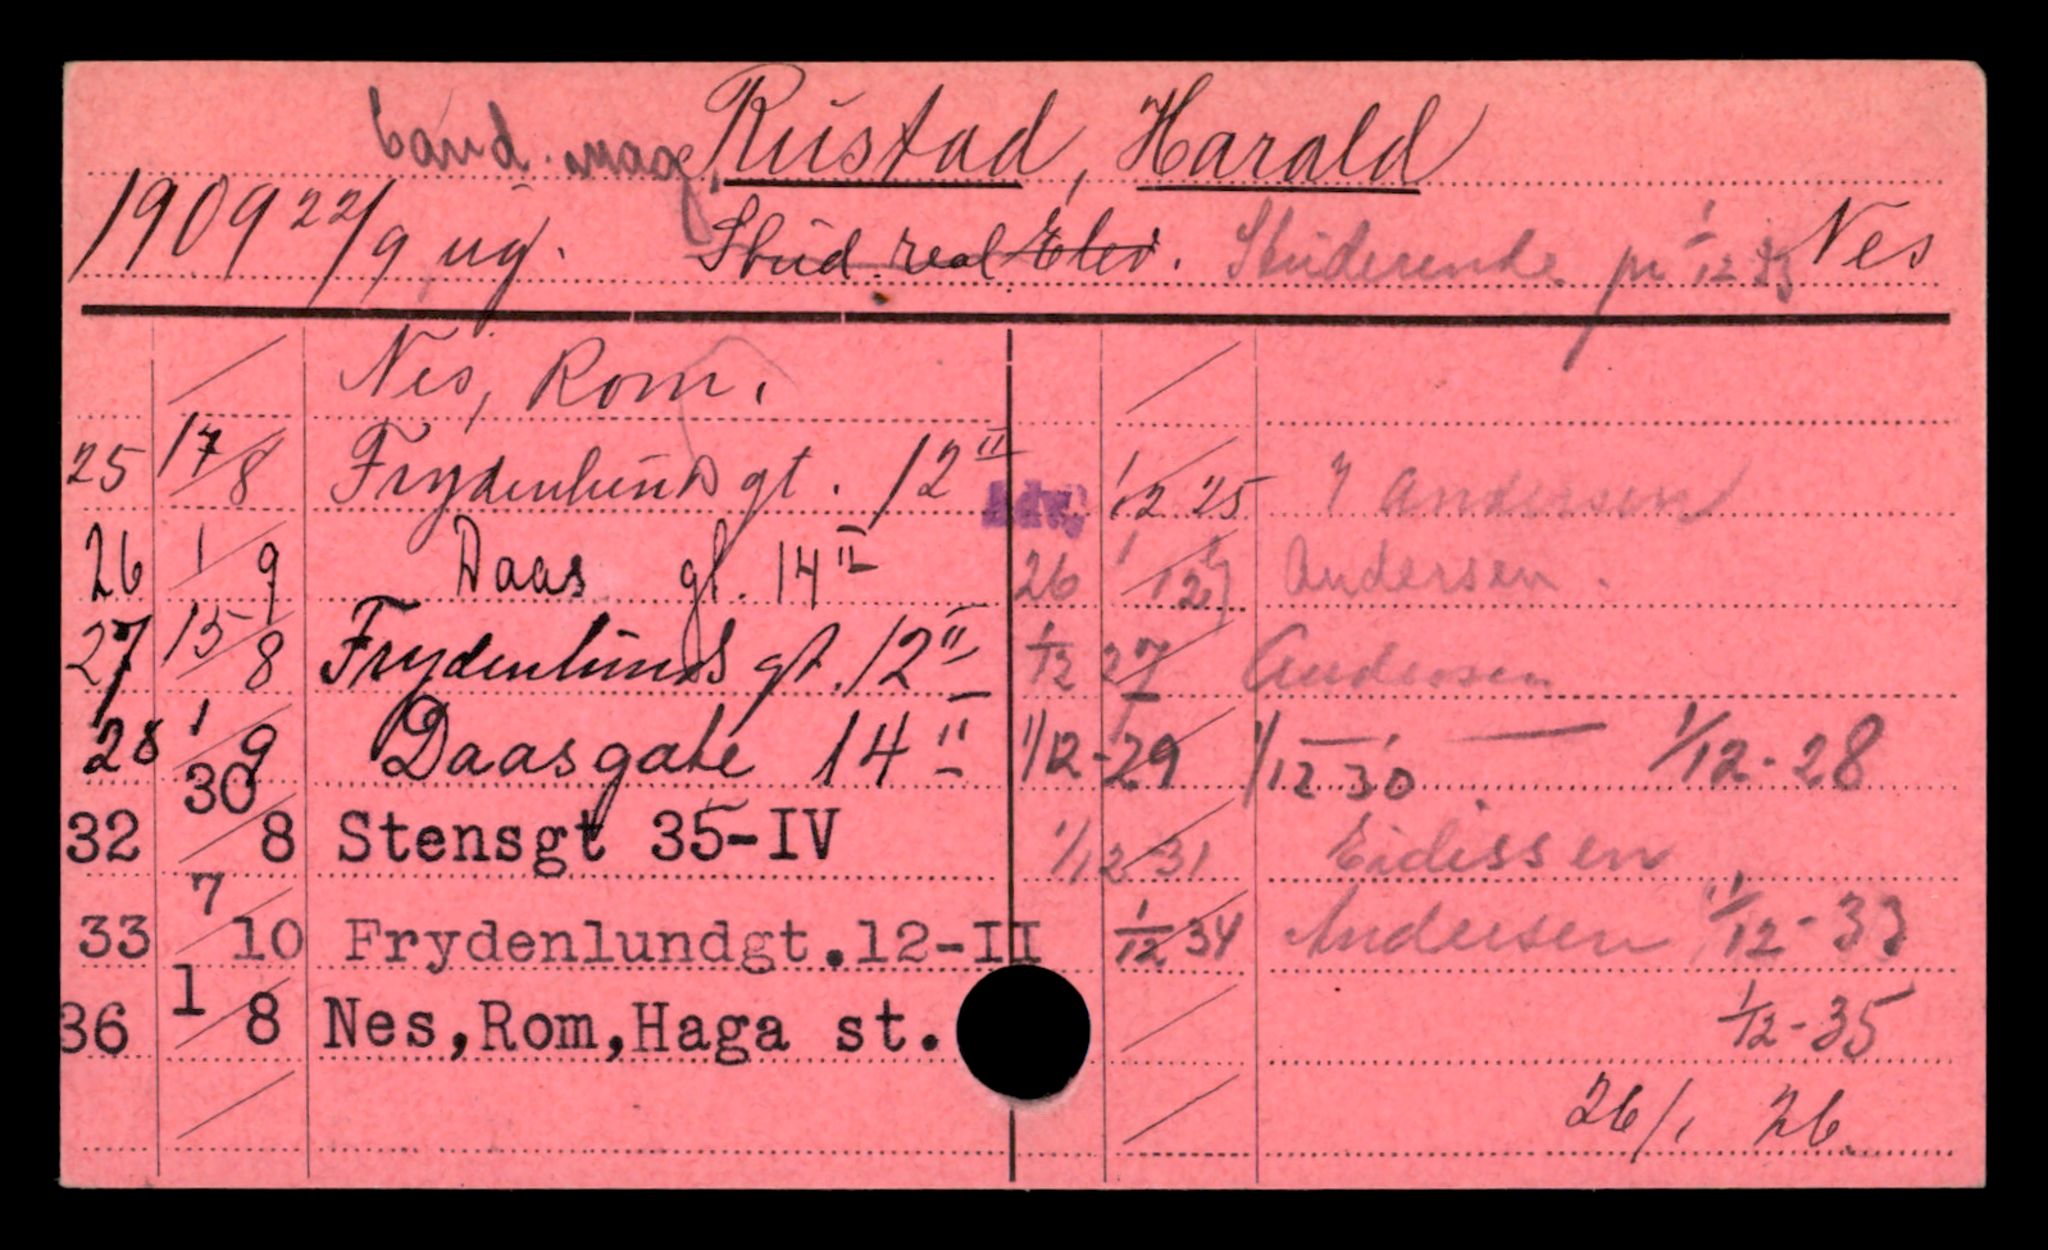 cand. mag. Rustad, Harald
1909 22/9 ug. Stud. real Elev. Studerende pr 1/12 33 Nes
Nes, Rom.
25 17/8 Frydenlundsgt. 12 II Adv. 1/12 25 Andersen
26 1/9 Daas gt. 14 II 26 1/12 Andersen.
27 15/8 Frydenlunds gt. 12 II 1/12 27 Andersen
28 1/9 Daasgate 14 II 1/12-29 1/12 30 — 1/12-28
32 30/8 Stensgt 35-IV 1/12 31 Eidissen
33 7/10 Frydenlundgt.12-II 1/12 34 Andersen 1/12-33
36 1/8 Nes,Rom,Haga st. 1/12-35
26/1 26.